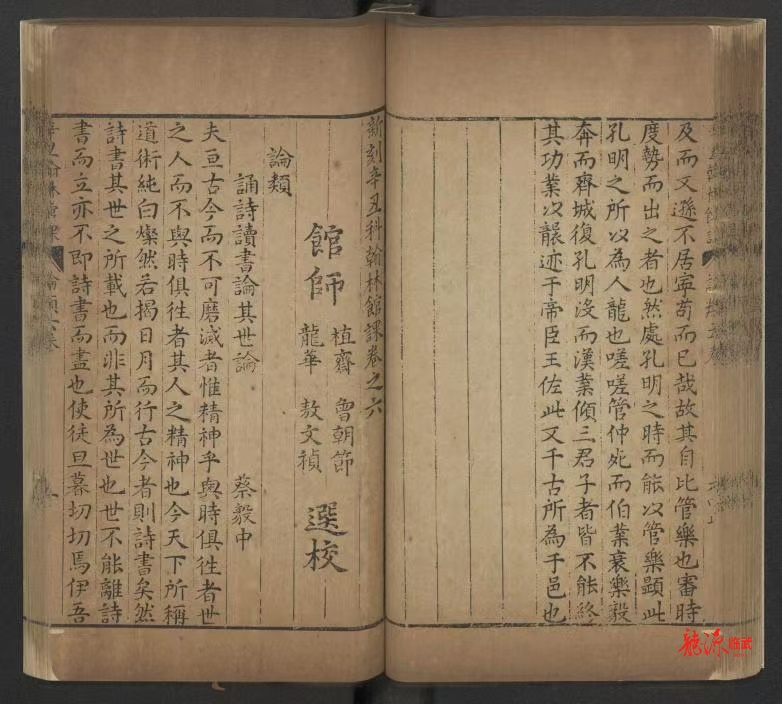 及而又遜不居寧苟而已哉故其自比管樂也審時
度勢而出之者也然處孔明之時而能以管樂顕此
孔明之所以為人龍也嗟嗟管仲死而伯業衰樂毅
奔而齊城復孔明沒而漢業傾三君子者皆不能終
其功業以襲迹于帝臣王佐此又千古所為于邑也
新刻辛丑科翰林館課卷之六
館師 植齋 曾朝節
龍華 敖文禎 選校
論類
誦詩讀書論其世論 蔡毅中
夫亘古今而不可磨滅者惟精神乎與時俱徃者世
之人而不與時俱徃者其人之精神也今天下所稱
道術純白燦然若揭日月而行古今者則詩書矣然
詩書其世之所載也而非其所為世也世不能離詩
書而立亦不即詩書而盡也使徒旦暮切切焉伊吾
龍源臨武